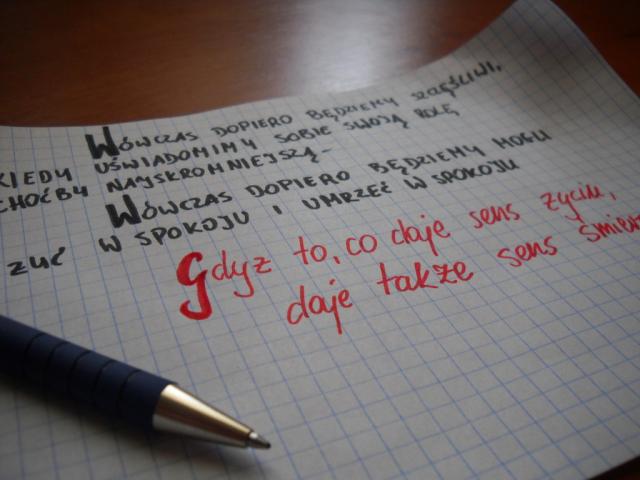 WÓWCZAS DOPIERO BĘDZIEMY SZCZĘŚLIWI,
KIEDY UŚWIADOMIMY SOBIE SWOJĄ ROLĘ
CHOĆBY NAJSKROMNIEJSZĄ-
WÓWCZAS DOPIERO BĘDZIEMY MOGLI
ŻUĆ W SPOKOJU I UMRZEĆ W SPOKOJU
Gdyż to, co daje sens życiu,
daje także sens śmier